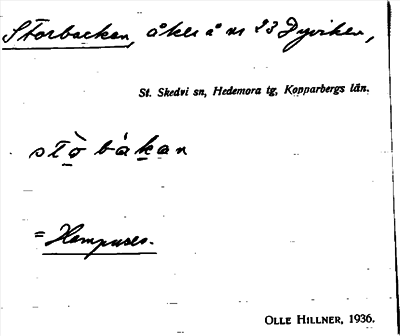 Storbacken, åker å nr 23 Dyviken,
St. Skedvi sn, Hedemora tg, Kopparbergs län.
stò bákan
=
OLLE HILLNER, 1936.